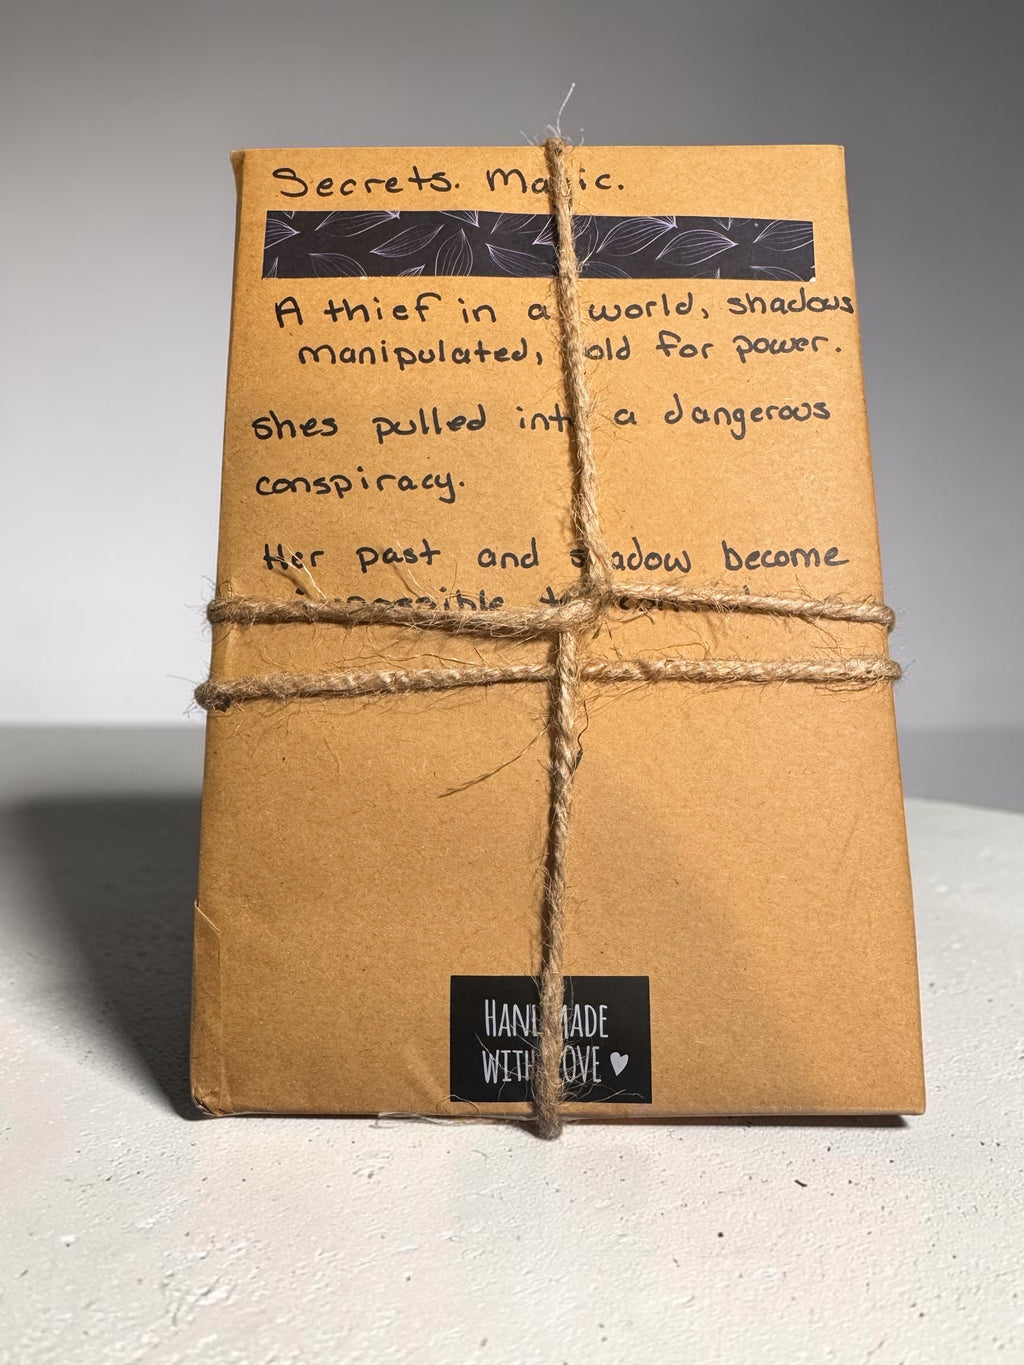 Secrets. Magic.
A thief in a world, shadows
manipulated, sold for power.
shes pulled into a dangerous
conspiracy.
Her past and shadow become
impossible to control
HANDMADE
WITH LOVE